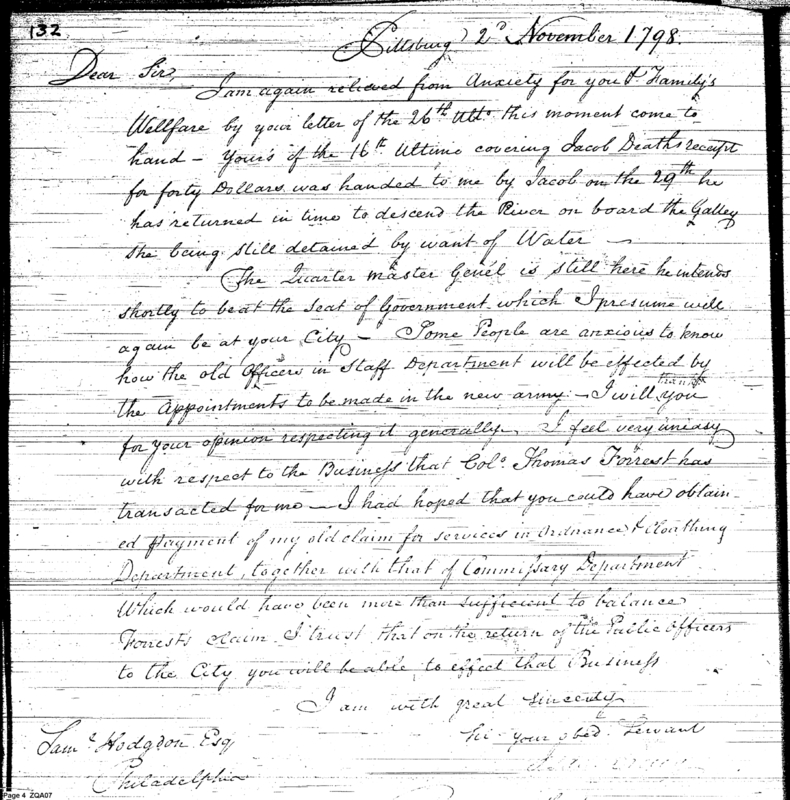 132
Pittsburg 2d November 1798.
Dear Sir,
I am again relieved from Anxiety for you & Family's
Wellfare by your letter of the 26th Ulto. this moment come to
hand – Your's of the 16th Ultimo covering Jacob Deaths receipt
for forty Dollars was handed to me by Jacob on the 29th he
has returned in time to descend the River on board the Galley
she being still detained by want of Water –
The Quarter master Genel is still here he intends
shortly to be at the Seat of Government which I presume will
again be at your City – Some People are anxious to know
how the old Officers in Staff Department will be effected by
the Appointments to be made in the new army – I will thank you
for your opinion respecting it generally. I feel very uneasy
with respect to the Business that Colo. Thomas Forrest has
transacted for me – I had hoped that you could have obtain
ed Payment of my old claim for services in Ordnance & Cloathing
Department, together with that of Commissary Department
Which would have been more than sufficient to balance
Forrests claim I trust that on the return of the Public Officers
to the City you will be able to effect that Business
I am with great sincerity
Sir your obed. Servant
Saml Hodgdon Esq
Philadelphia
Page 4 ZQA07